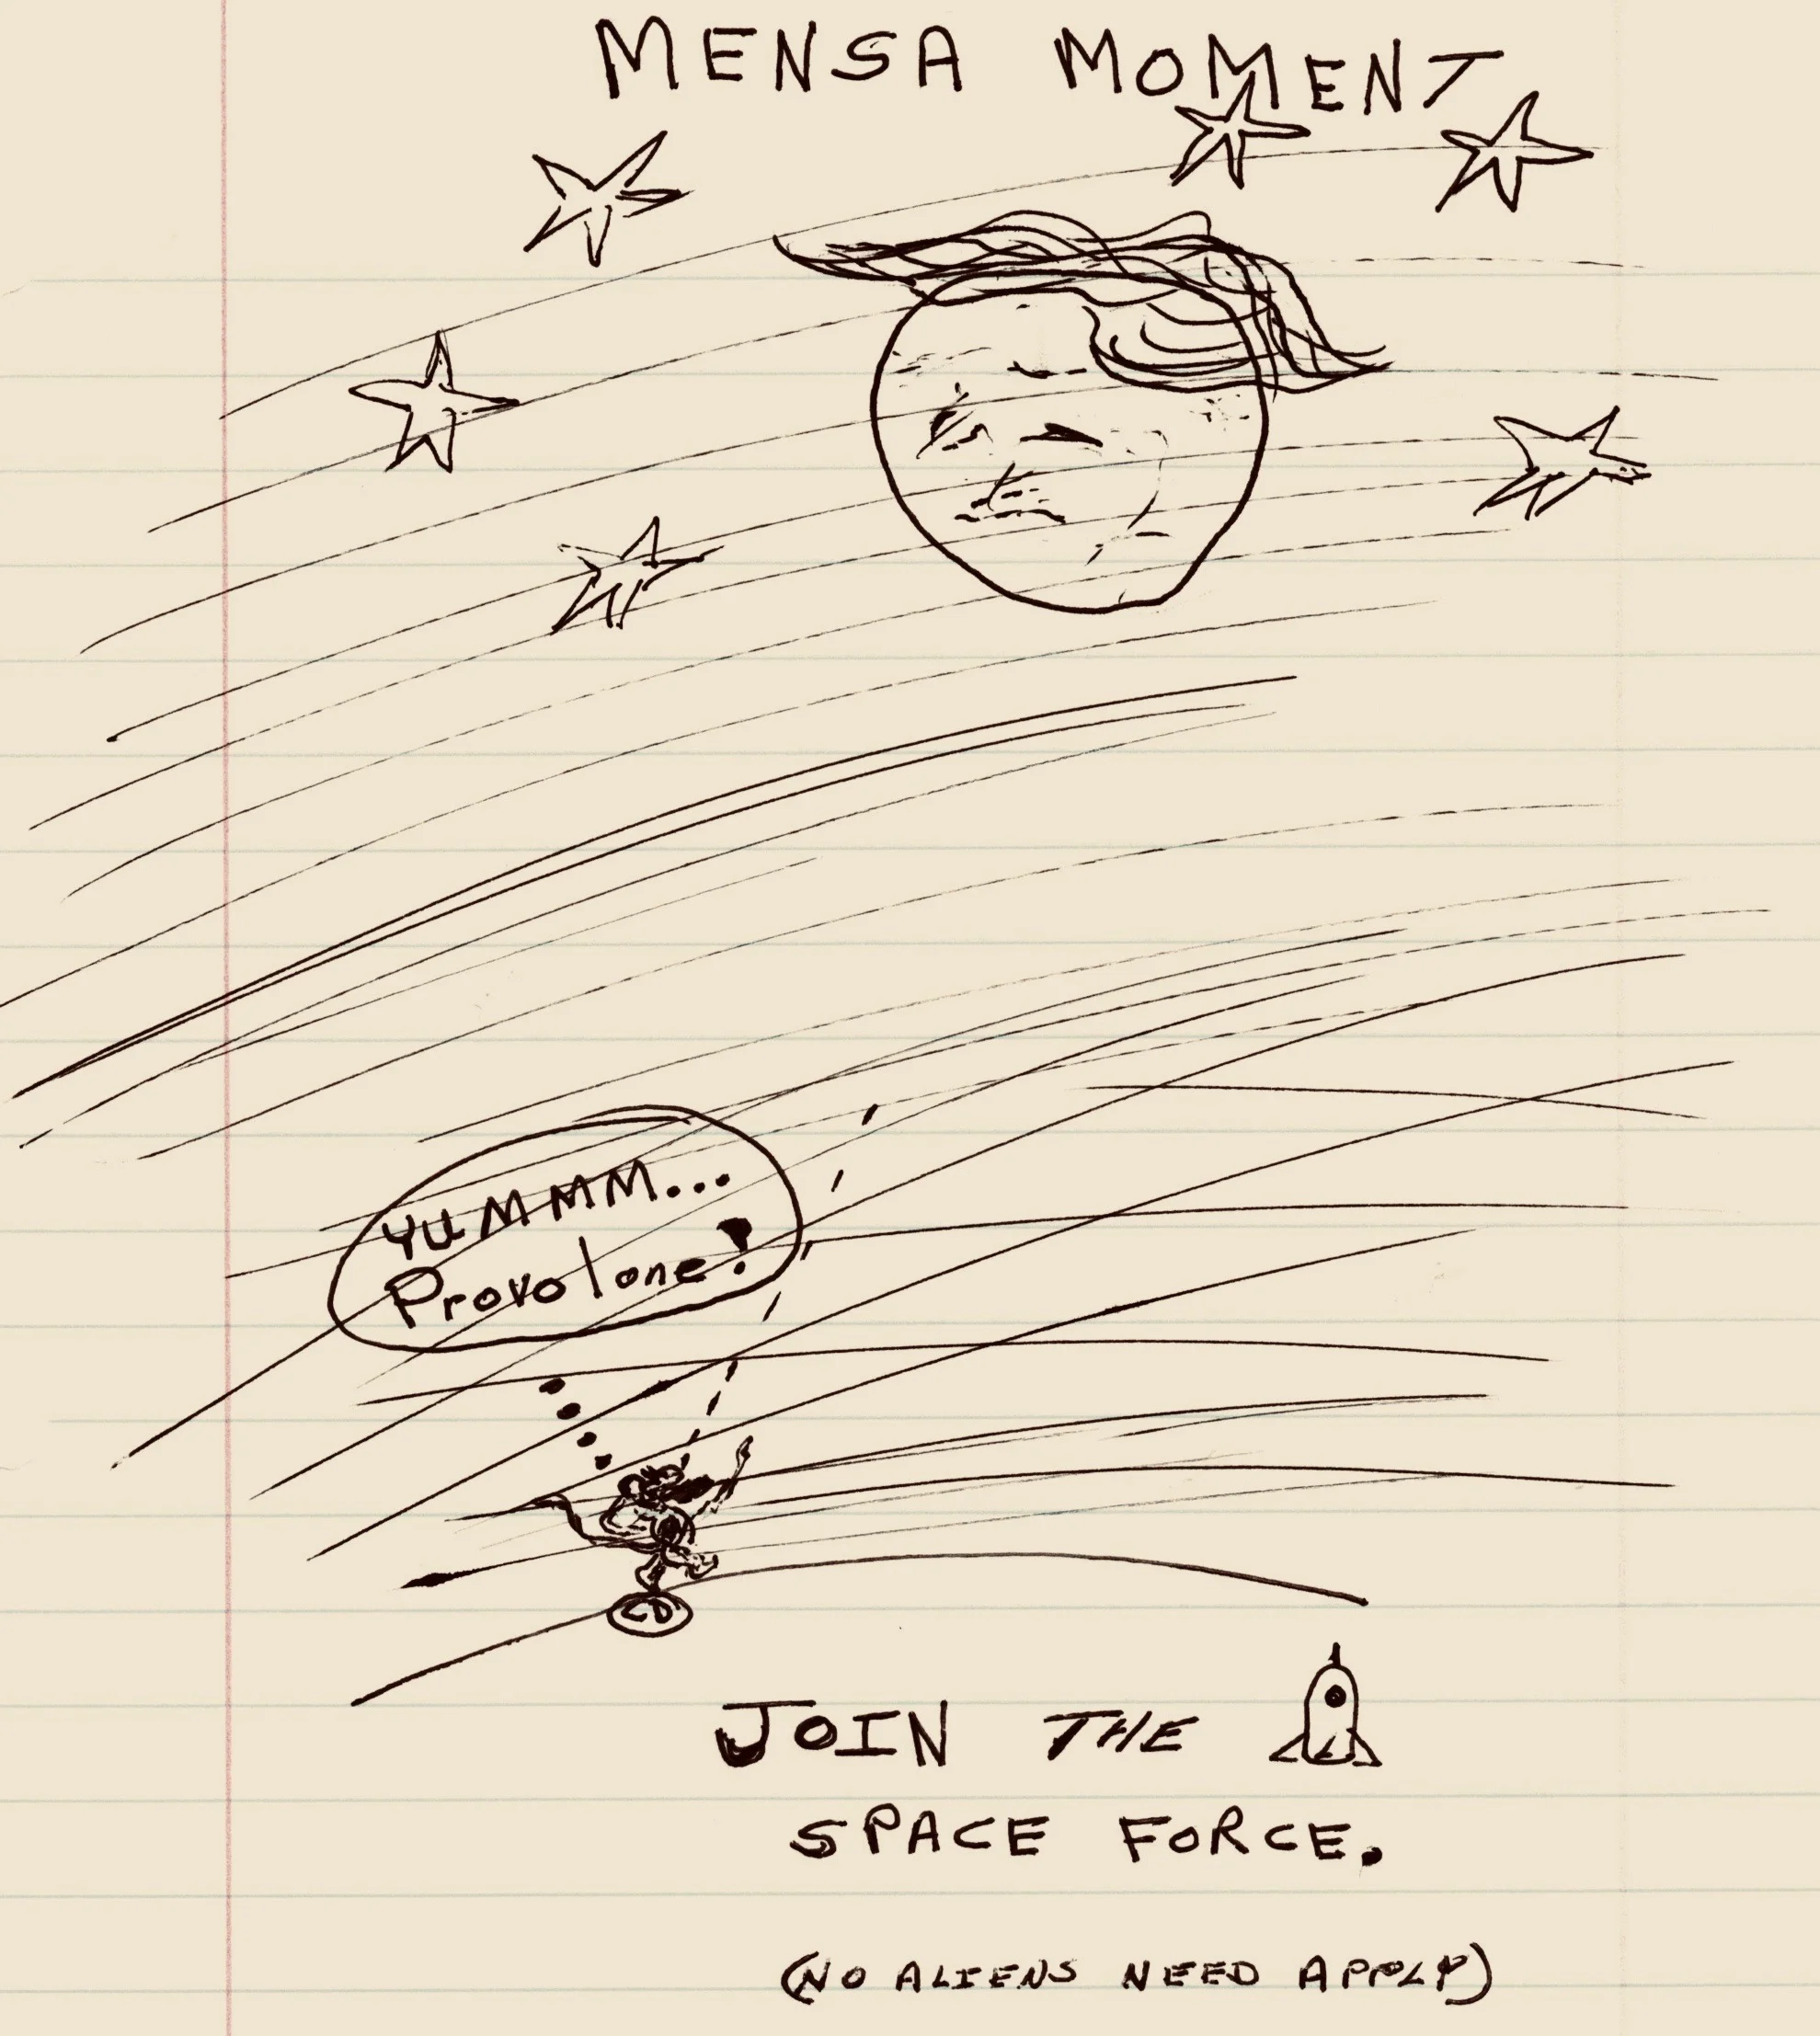 MENSA MOMENT
YUMMMM...
Provolone!
CD
JOIN THE
SPACE FORCE.
(NO ALIENS NEED APPLY)